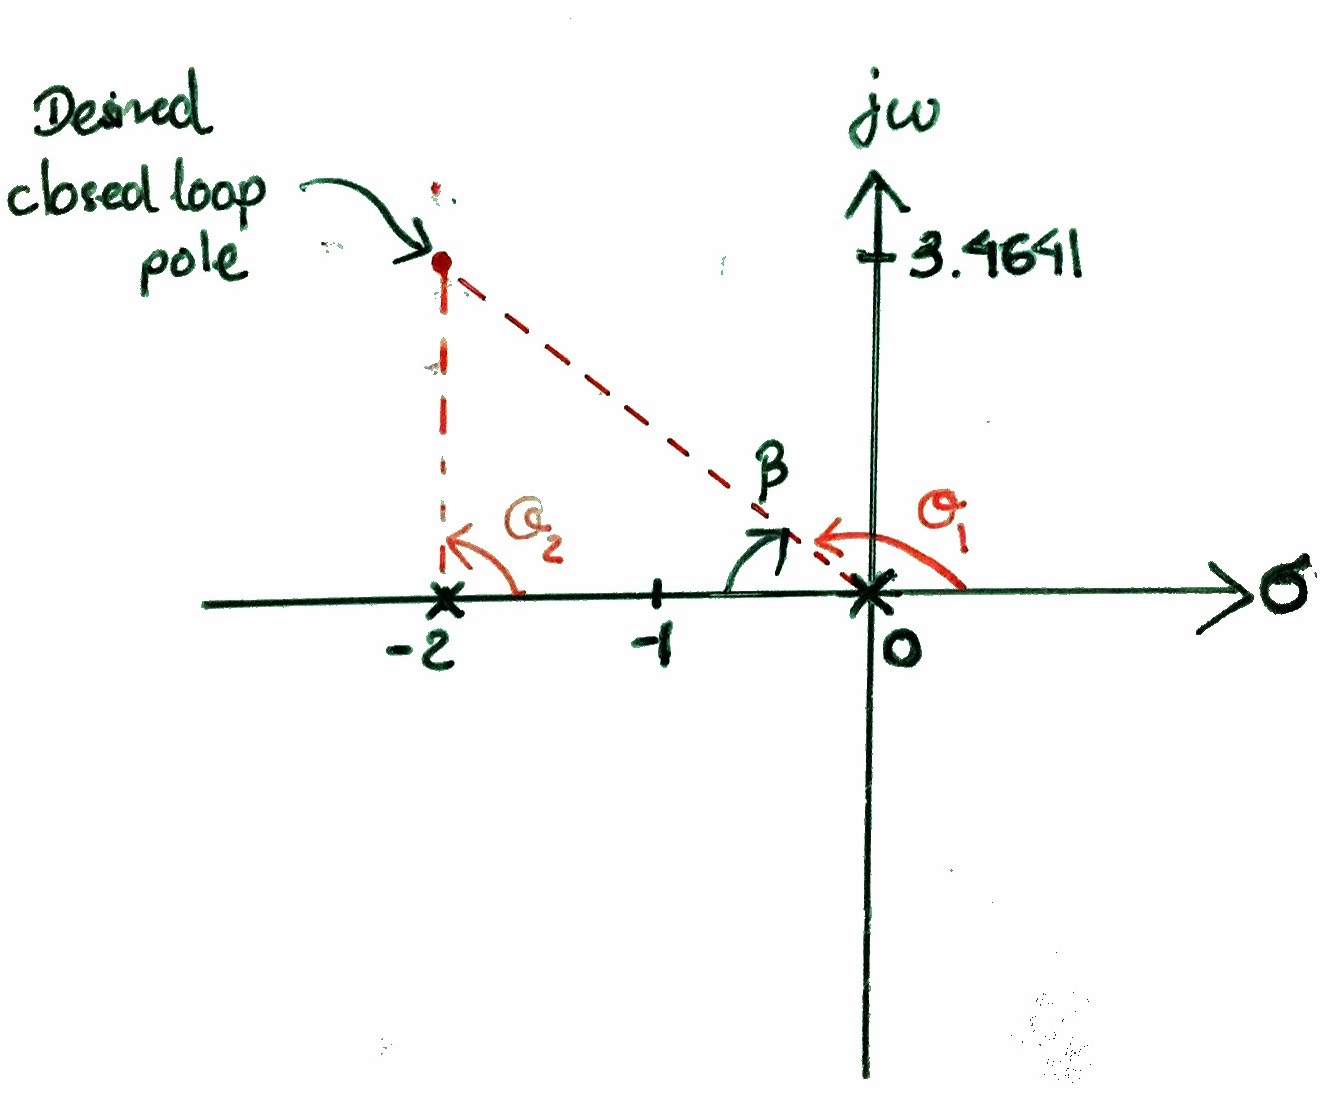 Desired
closed loop
pole
jω
3.4641
β
θ₂
θ₁
σ
-2
-1
0